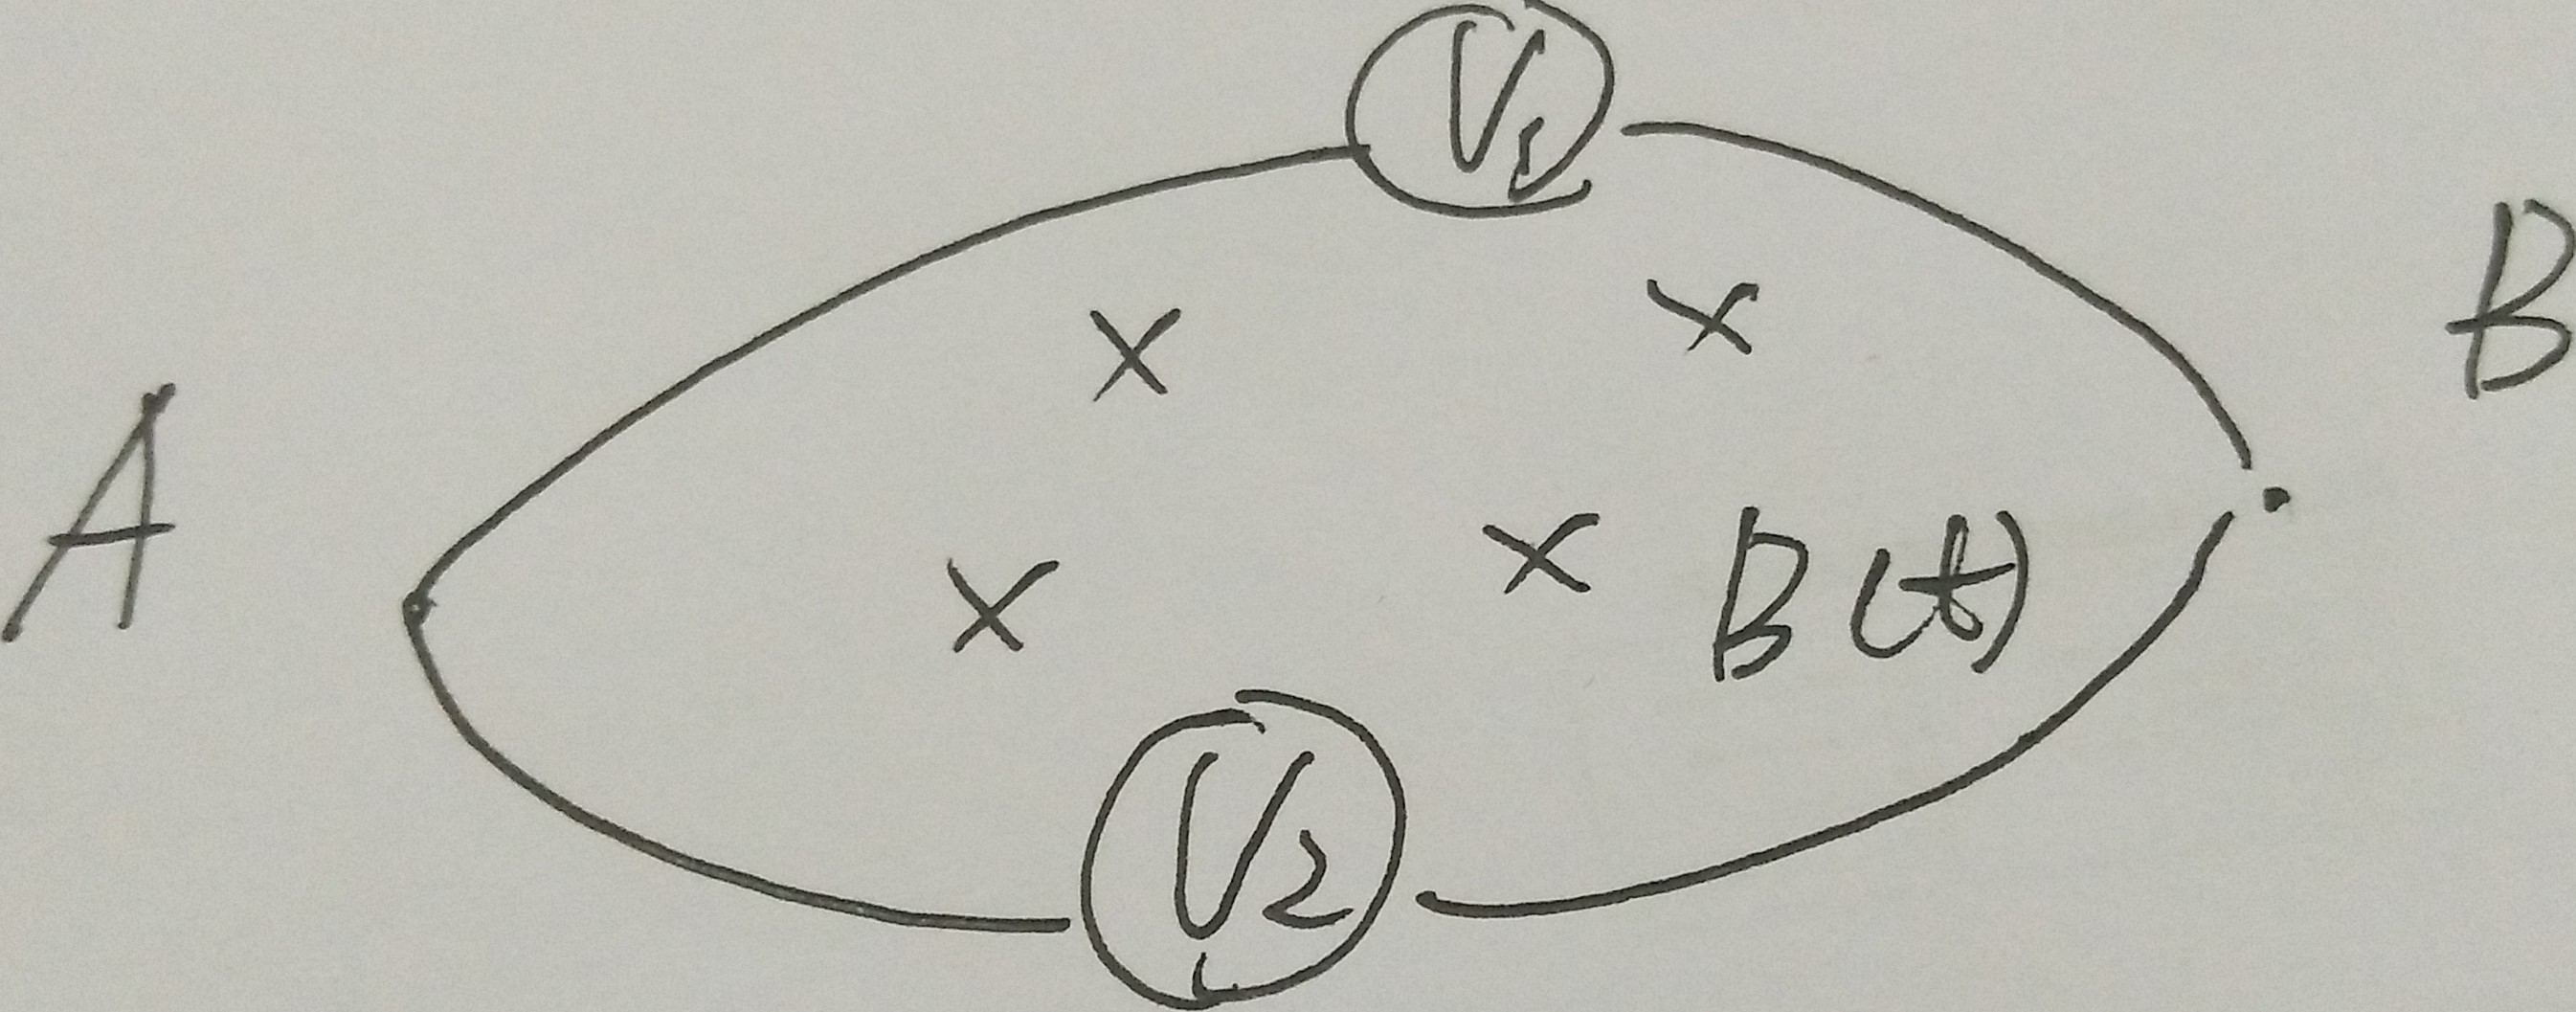 V₁
B
A
B(t)
V₂